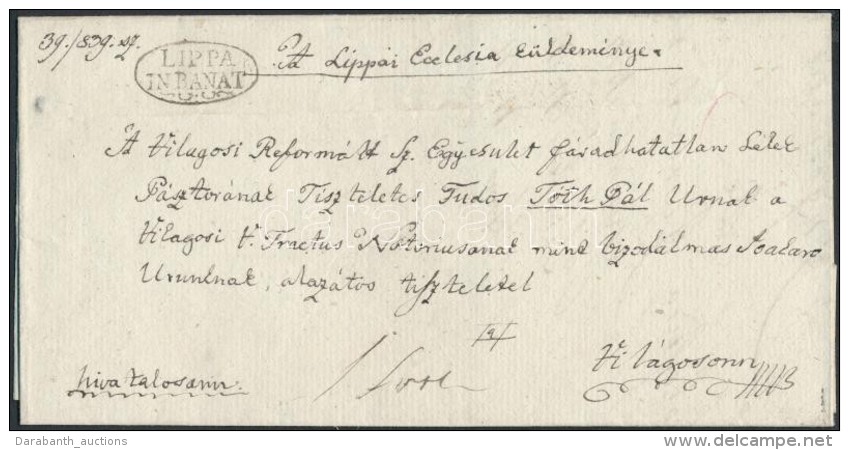 39./839. sz.
LIPPA
IN BANAT
A Lippai Ecclesia küldeménye.
A Világosi Reformált Sz. Egyesület fáradhatatlan Lélek
Pásztorának Tiszteletes Tudos Tóth Pál Urnak a
Világosi V. Tractus Notoriusanak mint bizodálmas
Urunknak, alazátos tisztelettel
Világosonn
hivatalosann.
Darabanth_auctions
www.delcampe.net